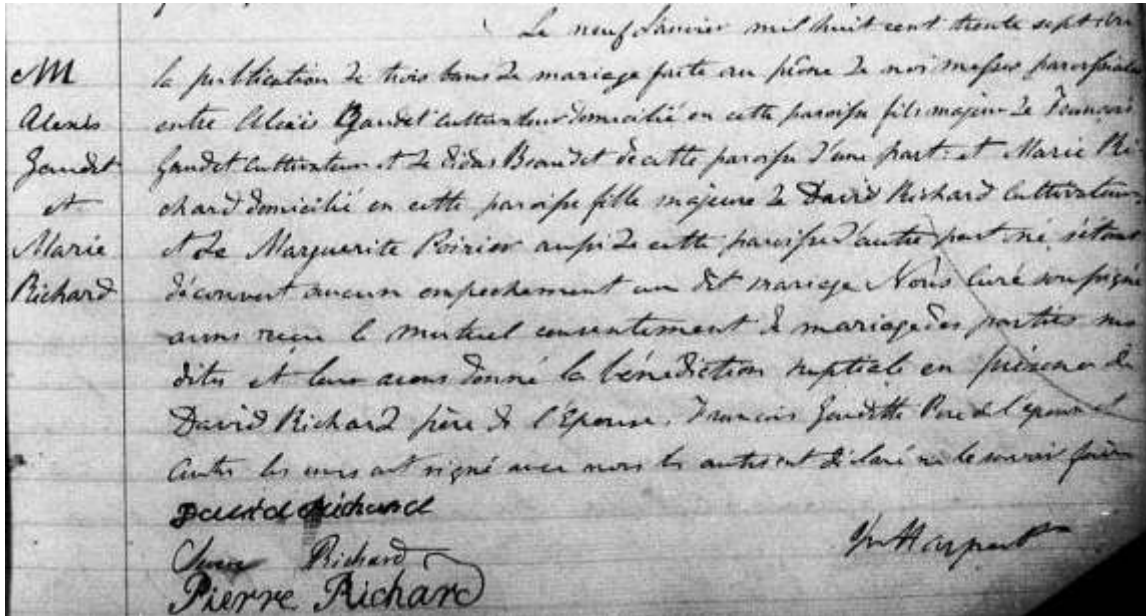 Le neuf Janvier mil huit cent trente sept vu
M
Alexis
Gaudet
et
Marie
Richard
la publication de trois bans de mariage faite au prône de nos messes paroissiales
entre Alexis Gaudet cultivateur domicilié en cette paroisse fils majeur de François
Gaudet cultivateur et de Beaudet de cette paroisse d'une part: et Marie Ri
chard domicilié en cette paroisse fille majeure de David Richard Cultivateur
et de Marguerite Poirier aussi de cette paroisse d'autre part né s'étant
découvert aucun empechement au dit mariage Nous Curé soussigné
avons recu le mutuel consentement de mariage des parties
dites et leur avons donné la bénédiction nuptiale en présence de
David Richard père de l'Epouse, Francois Gaudette Pere de l'epoux et
autres les uns ont signé avec nous les autres ont déclaré ne le savoir faire
David Richard
Richard
Pierre Richard